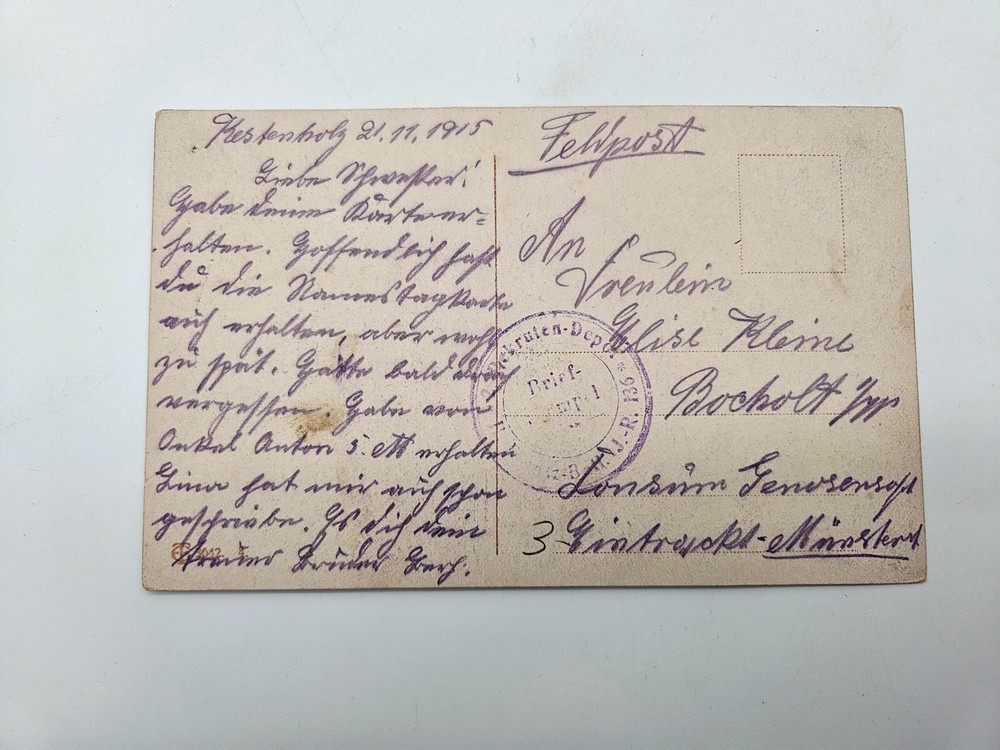 Kestenholz 21.11.1915
Liebe Schwester!
Habe deine Karte er=
halten. Hoffendlich hast
du die Namestagkarte
auch erhalten, aber wohl
zu spät. Hätte bald
vergessen. Habe von
Onkel Anton 5 M erhalten
Lina hat mir auch schon
geschriebe. Es dich dein
treuer Bruder Berh.
3012
Feldpost
An
Freulein
Elise Kleine
Bocholt
Konsüm Genosensaft
3 Eintrackt-Münsterst
Rekruten-Depot * J.-R. 136
Brief-